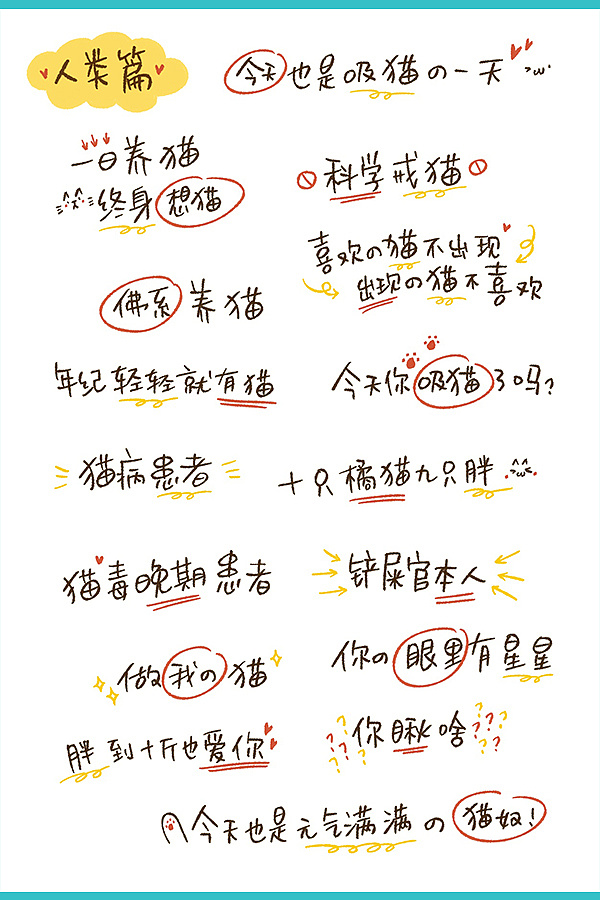 人类篇
今天也是吸猫の一天
一日养猫
终身想猫
科学戒猫
喜欢の猫不出现
出现の猫不喜欢
佛系养猫
年纪轻轻就有猫
今天你吸猫了吗?
猫病患者
十只橘猫九只胖
猫毒晚期患者
铲屎官本人
做我の猫
你の眼里有星星
胖到十斤也爱你
你瞅啥
今天也是元气满满の猫奴!